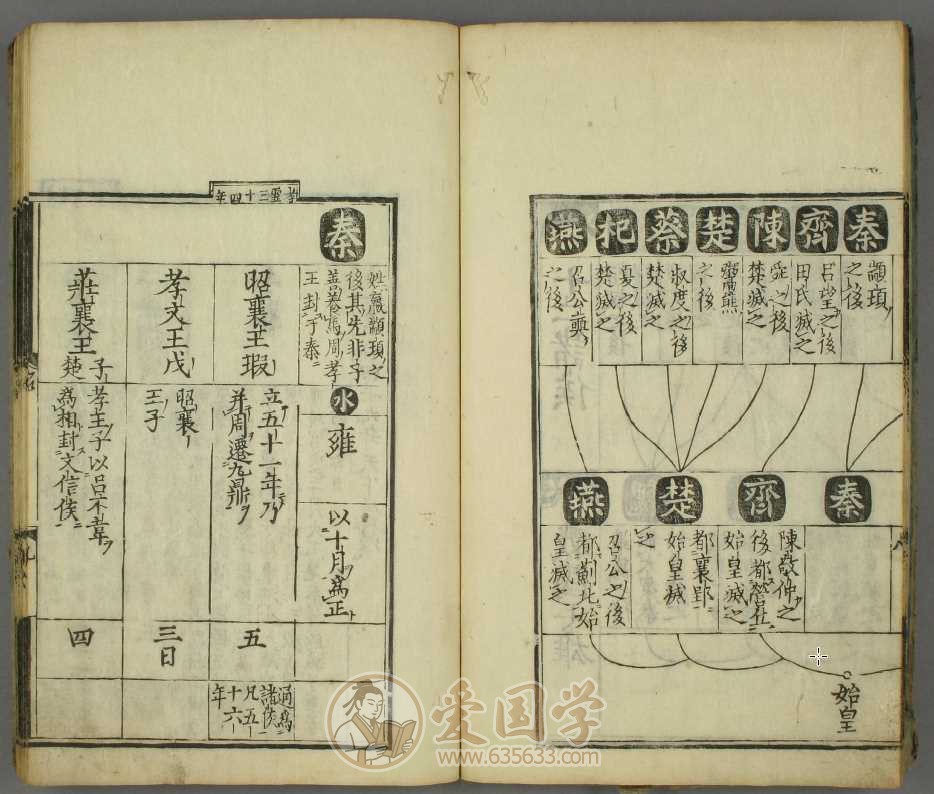 秦齊陳楚蔡杞燕
顓頊
之後
呂望之後
田氏滅之
舜之後
楚滅之
鬻熊
之後
叔度之後
楚滅之
夏之後
楚滅之
召公奭
之後
秦齊楚燕
陳敬仲之
後都營丘
始皇滅之
都襄郢
始皇滅
之
召公之後
都薊北始
皇滅之
始皇
八
三十四年
秦
姓嬴顓頊之
後其先非子
善養馬周孝
王封于秦
水
雍
以十月爲正
昭襄王瑕
立五十一年乃
并周遷九鼎
五
通爲
諸侯
凡五
十六
年
孝文王戊
昭襄
王子
三日
莊襄王子楚
孝王子以呂不韋
爲相封文信侯
四
九
爱国学
www.635633.com